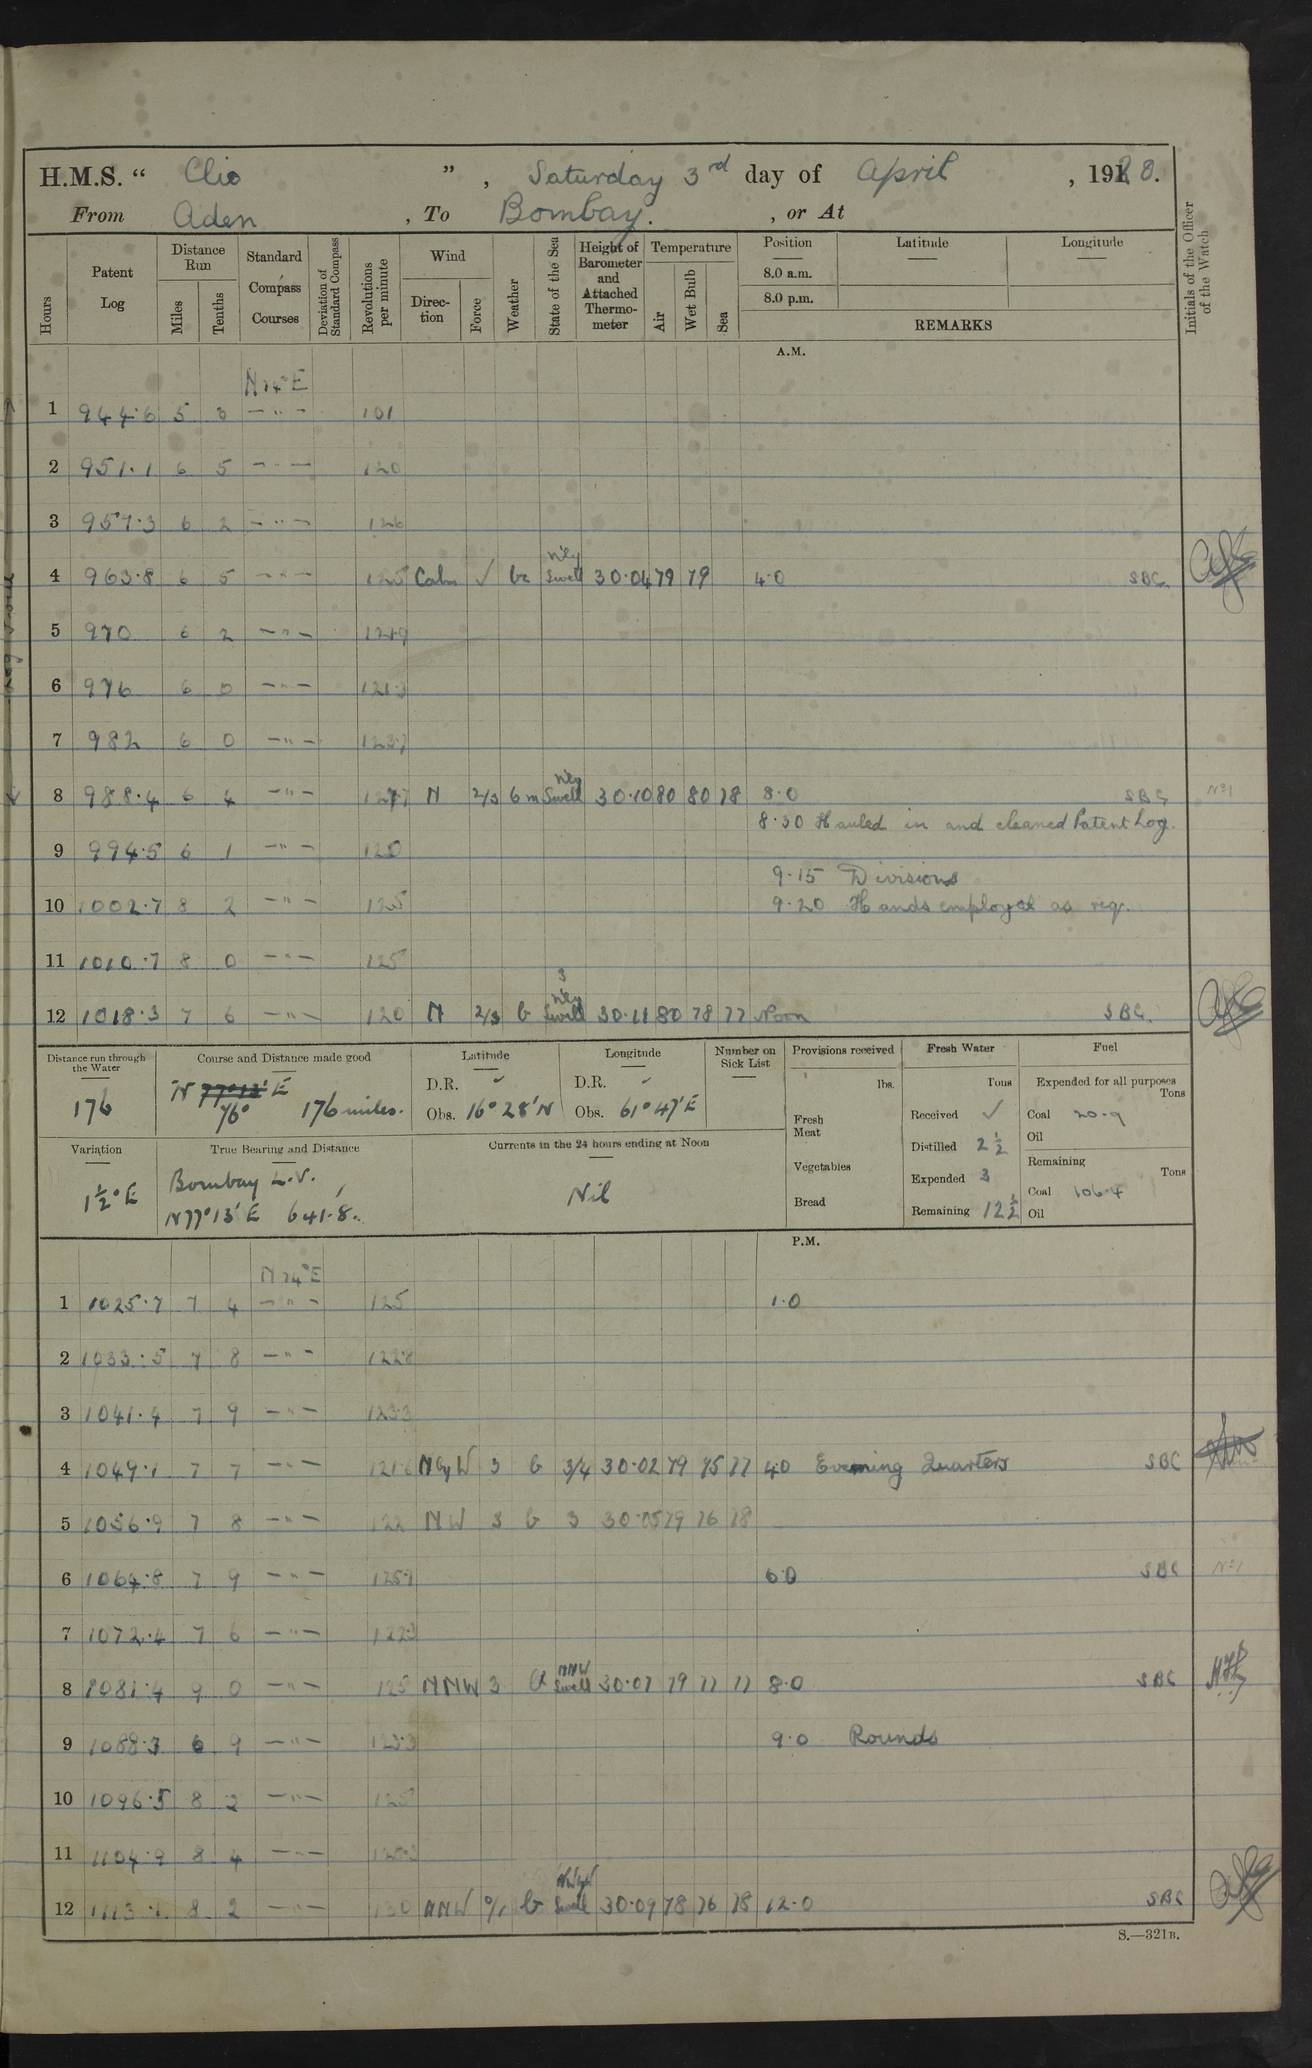 H.M.S. “ Clio ” , Saturday 3rd day of April , 1920.
From Aden , To Bombay. , or At
Hours
Patent Log
Distance Run
Miles
Tenths
Standard Compass Courses
Deviation of Standard Compass
Revolutions per minute
Wind
Direction
Force
Weather
State of the Sea
Height of Barometer and Attached Thermometer
Temperature
Air
Wet Bulb
Sea
Position
8.0 a.m.
8.0 p.m.
Latitude
Longitude
REMARKS
Initials of the Officer of the Watch
A.M.
N 74° E
1 944·6 5 8 — " — 101
2 951·1 6 5 — " — 120
3 957·3 6 2 — " — 126
4 963·8 6 5 — " — 125 Calm ✓ bc N'ly Swell 30·04 79 79 4·0 SBC
5 970 6 2 — " — 121·9
6 976 6 0 — " — 121·3
7 982 6 0 — " — 123·7
8 988·4 6 4 — " — 127·7 N 2/3 bm N'ly Swell 30·10 80 80 78 8·0 SBC No 1
8·30 Hauled in and cleaned Patent Log.
9 994·5 6 1 — " — 120
9·15 Divisions
10 1002·7 8 2 — " — 125 9·20 Hands employed as req.
11 1010·7 8 0 — " — 125
12 1018·3 7 6 — " — 120 N 2/3 b 3 N'ly Swell 30·11 80 78 77 Noon SBC.
Distance run through the Water
176
Course and Distance made good
N 77°13' E 76° 176 miles.
Latitude
D.R. ✓
Obs. 16° 28' N
Longitude
D.R. ✓
Obs. 61° 47' E
Number on Sick List
Provisions received
lbs.
Fresh Meat
Vegetables
Bread
Fresh Water
Tons
Received ✓
Distilled 2½
Expended 3
Remaining 12½
Fuel
Expended for all purposes
Tons
Coal 20·9
Oil
Remaining
Tons
Coal 106·4
Oil
Variation
1½° E
True Bearing and Distance
Bombay L.V.
N 77° 13' E 641·8.
Currents in the 24 hours ending at Noon
Nil
P.M.
N 74° E
1 1025·7 7 4 — " — 125 1·0
2 1033·5 7 8 — " — 122·8
3 1041·4 7 9 — " — 123·3
4 1049·1 7 7 — " — 121·6 N by W 3 b 3/4 30·02 79 75 77 4·0 Evening Quarters SBC
5 1056·9 7 8 — " — 122 NW 3 b 3 30·05 79 76 78
6 1064·8 7 9 — " — 125·7 6·0 SBC No 1
7 1072·4 7 6 — " — 122·3
8 1081·4 9 0 — " — 125 NNW 3 NNW Swell 30·07 79 77 77 8·0 SBC
9 1088·3 6 9 — " — 123·3 9·0 Rounds
10 1096·5 8 2 — " — 125
11 1104·9 8 4 — " —
12 1113·1 8 2 — " — 130 NNW 0/1 b Swell 30·09 78 76 78 12·0 SBC
S.—321B.